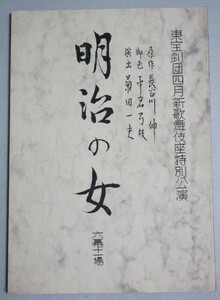 東宝劇団四月新歌舞伎座特別公演
原作 長谷川 伸
脚色
演出
明治の女
六幕十一場